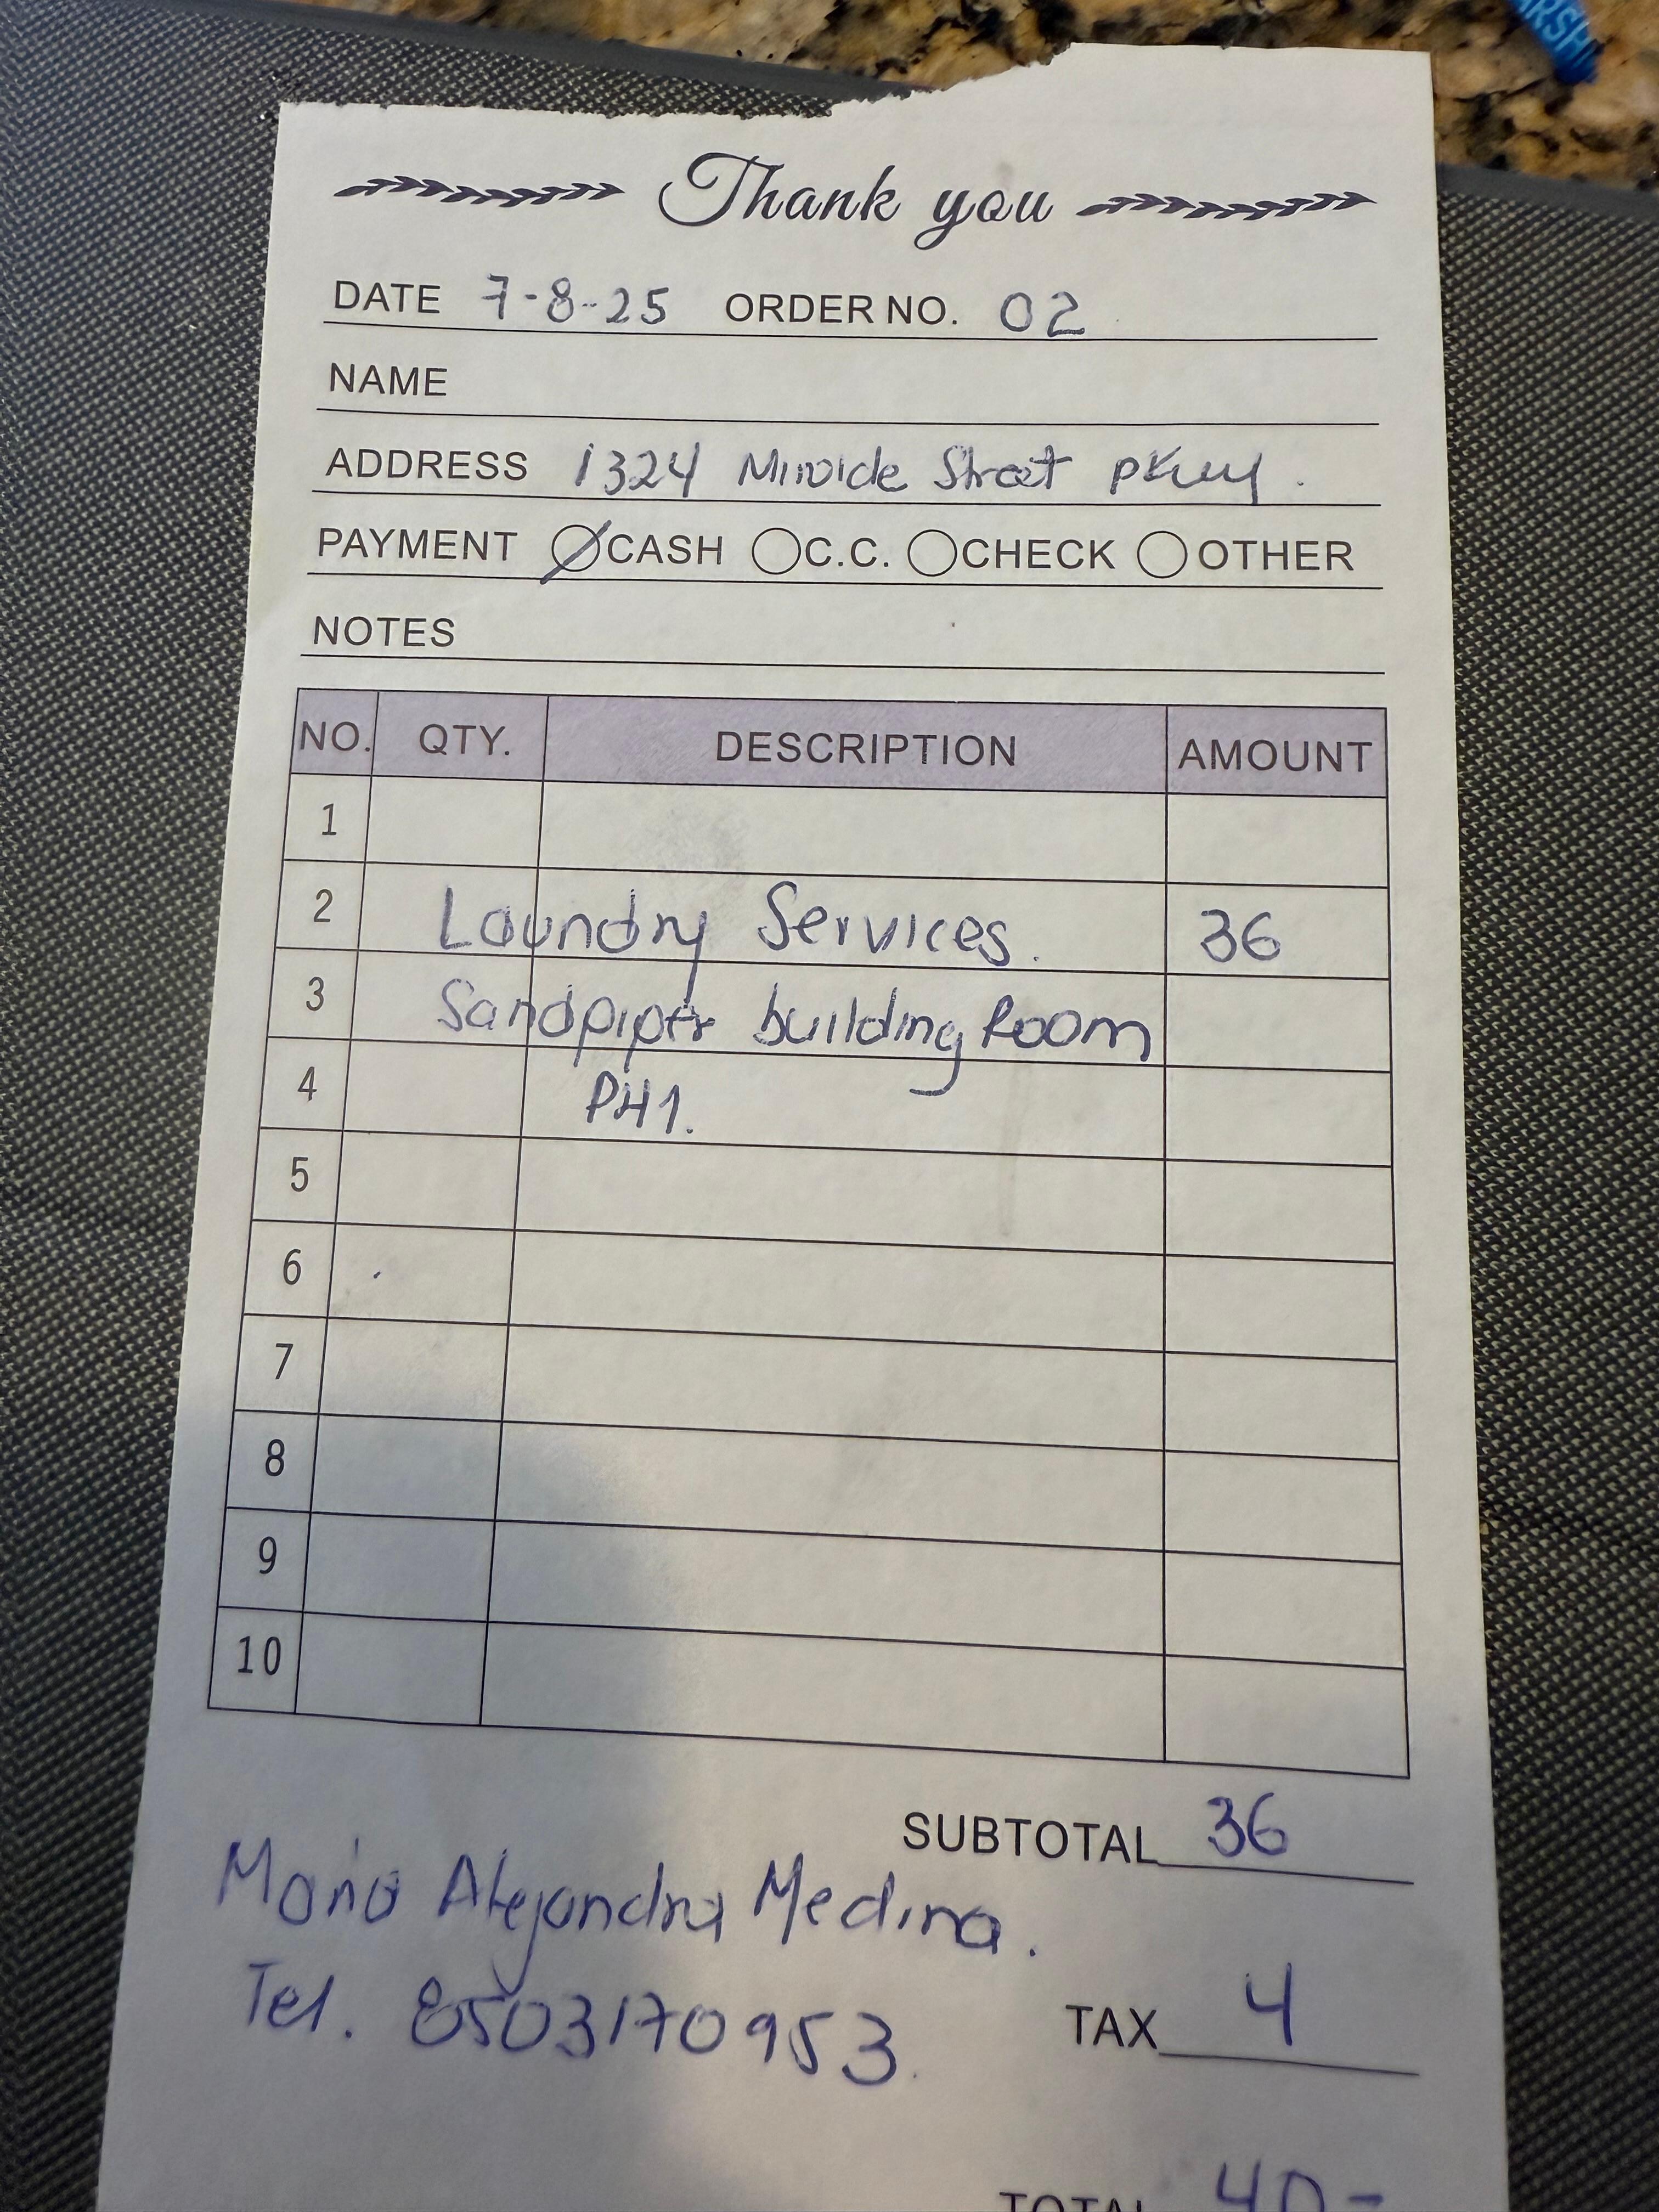 RSH
Thank you
DATE 7-8-25 ORDER NO. 02
NAME
ADDRESS 1324 Miracle Street pkwy.
PAYMENT CASH C.C. CHECK OTHER
NOTES
NO. QTY. DESCRIPTION AMOUNT
1
2 Laundry Services. 36
3 Sandpiper building Room
4 PH1.
5
6
7
8
9
10
SUBTOTAL 36
Maria Alejandra Medina.
Tel. 8503170953.
TAX 4
TOTAL 40-